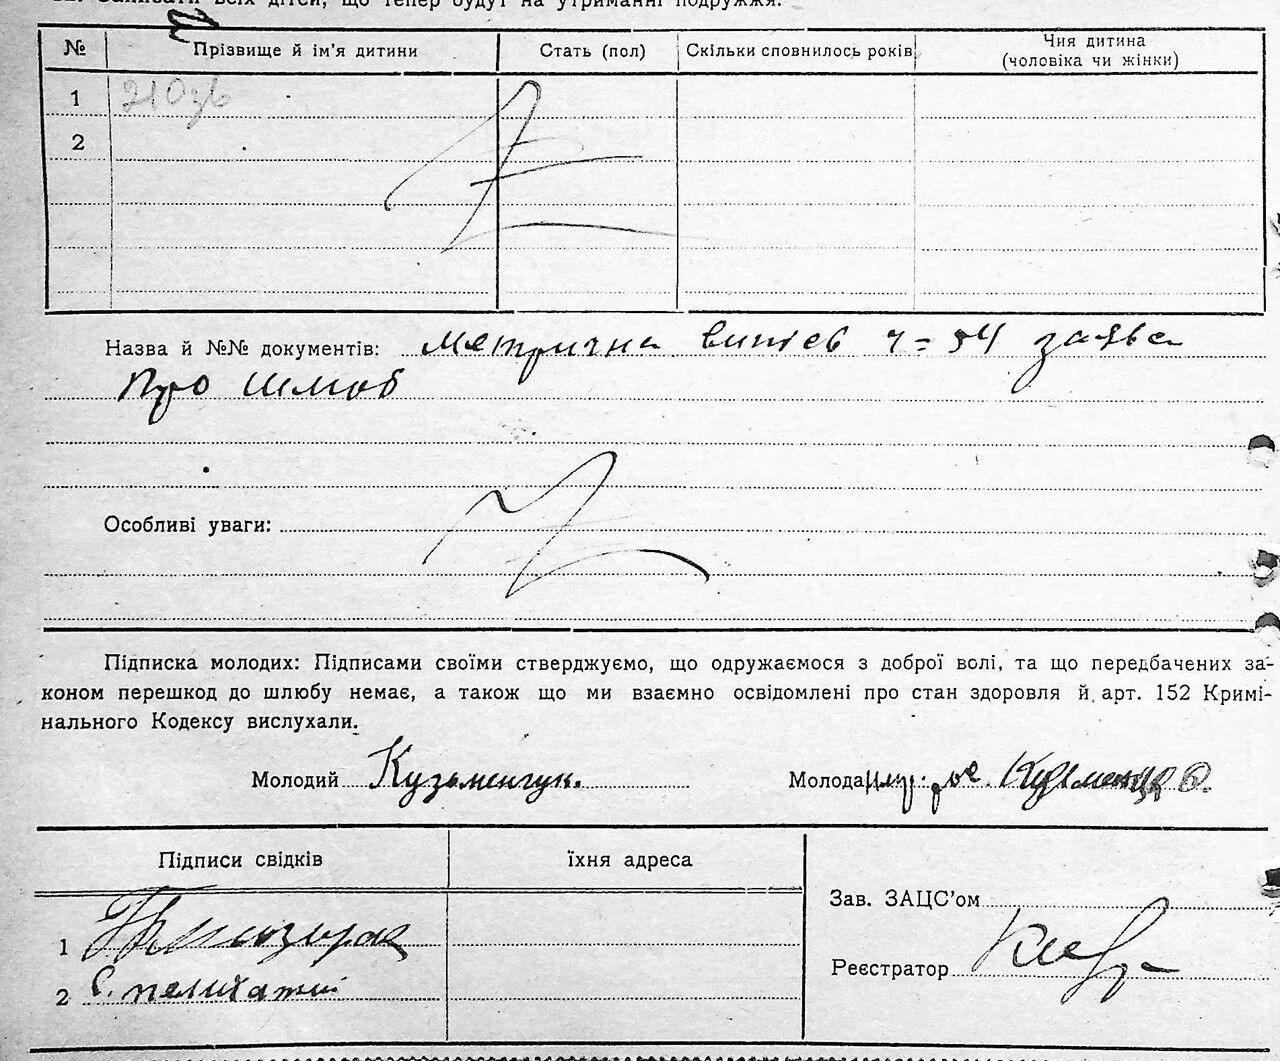 Записати всіх дітей, що тепер будут на утриманні подружжя.
№ Прізвище й ім'я дитини Стать (пол) Скільки сповнилось років Чия дитина (чоловіка чи жінки)
1
2
Назва й №№ документів: метрична випись ч = 54 заява
Про шлюб
Особливі уваги:
Підписка молодих: Підписами своїми стверджуємо, що одружаємося з доброї волі, та що передбачених за-
коном перешкод до шлюбу немає, а також що ми взаємно освідомлені про стан здоровля й арт. 152 Кримі-
нального Кодексу вислухали.
Молодий Кузьменчук. Молода
Підписи свідків їхня адреса
Зав. ЗАЦС'ом
1
Реєстратор
2